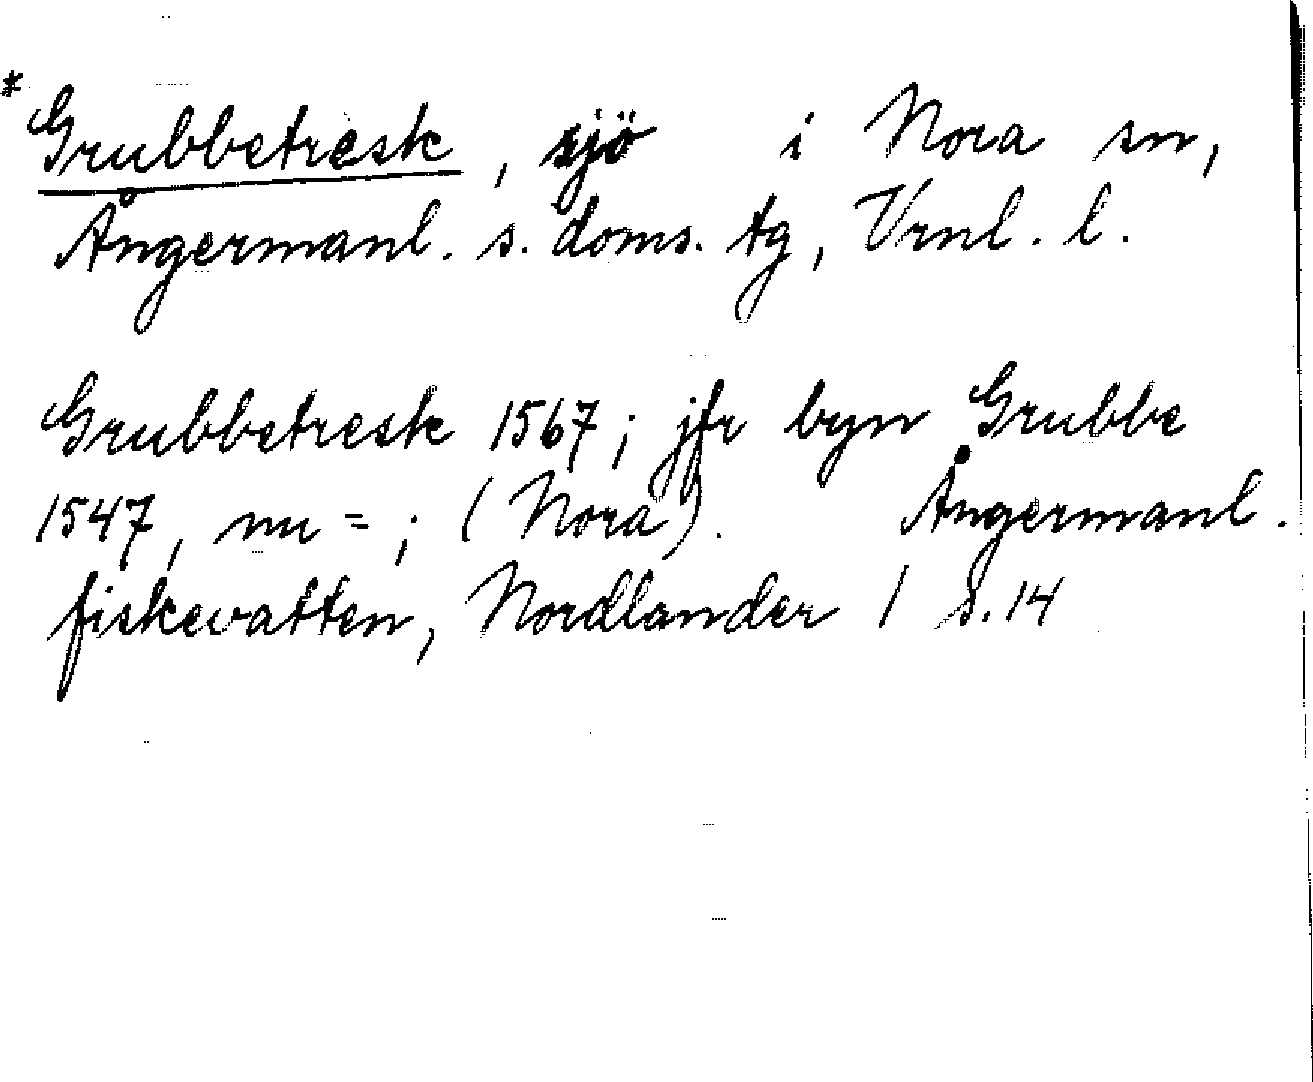 * Grubbetresk, sjö i Nora sn,
Ångermanl. s. doms. tg, Vrnl. l.
Grubbetresk 1567; jfr byn Grubbe
1547, nu = ; (Nora). Ångermanl.
fiskevatten, Nordlander 1 s. 14